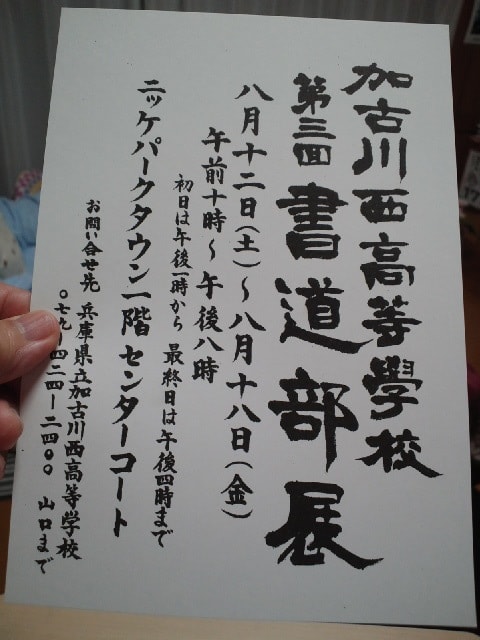 加古川西高等學校
第三回 書道部展
八月十二日(土)～八月十八日(金)
午前十時～午後八時
初日は午後一時から 最終日は午後四時まで
ニッケパークタウン一階 センターコート
お問い合せ先 兵庫県立加古川西高等学校
〇七九ー四二四ー二四〇〇 山口まで